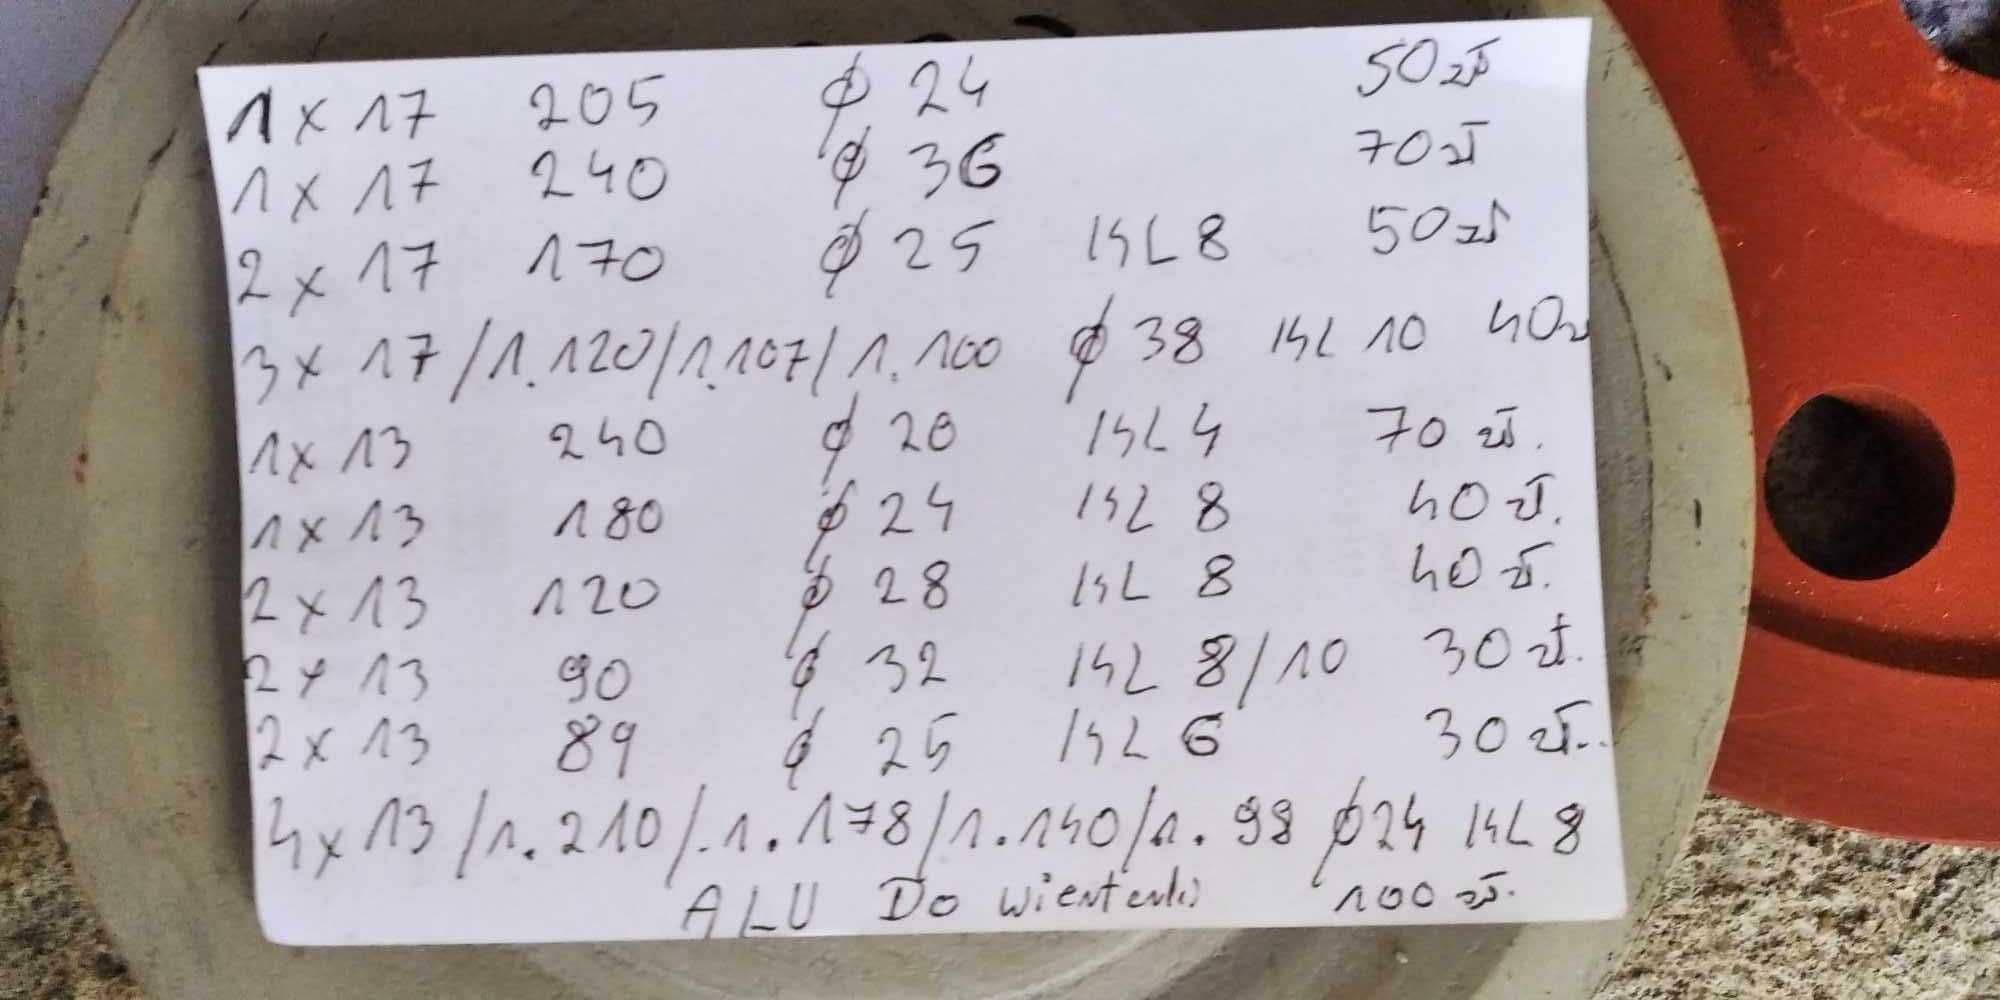 1 x 17 205 ϕ 24 50 zł
1 x 17 240 ϕ 36 70 zł
2 x 17 170 ϕ 25 KL 8 50 zł
3 x 17 /1.120/1.107/1.100 ϕ 38 KL 10 40 zł
1 x 13 240 ϕ 20 KL 4 70 zł.
1 x 13 180 ϕ 24 KL 8 40 zł.
2 x 13 120 ϕ 28 KL 8 40 zł.
2 x 13 90 ϕ 32 KL 8/10 30 zł.
2 x 13 89 ϕ 25 KL 6 30 zł..
4 x 13 /1.210/.1.178/1.140/1.98 ϕ 24 KL 8
ALU Do 100 zł.